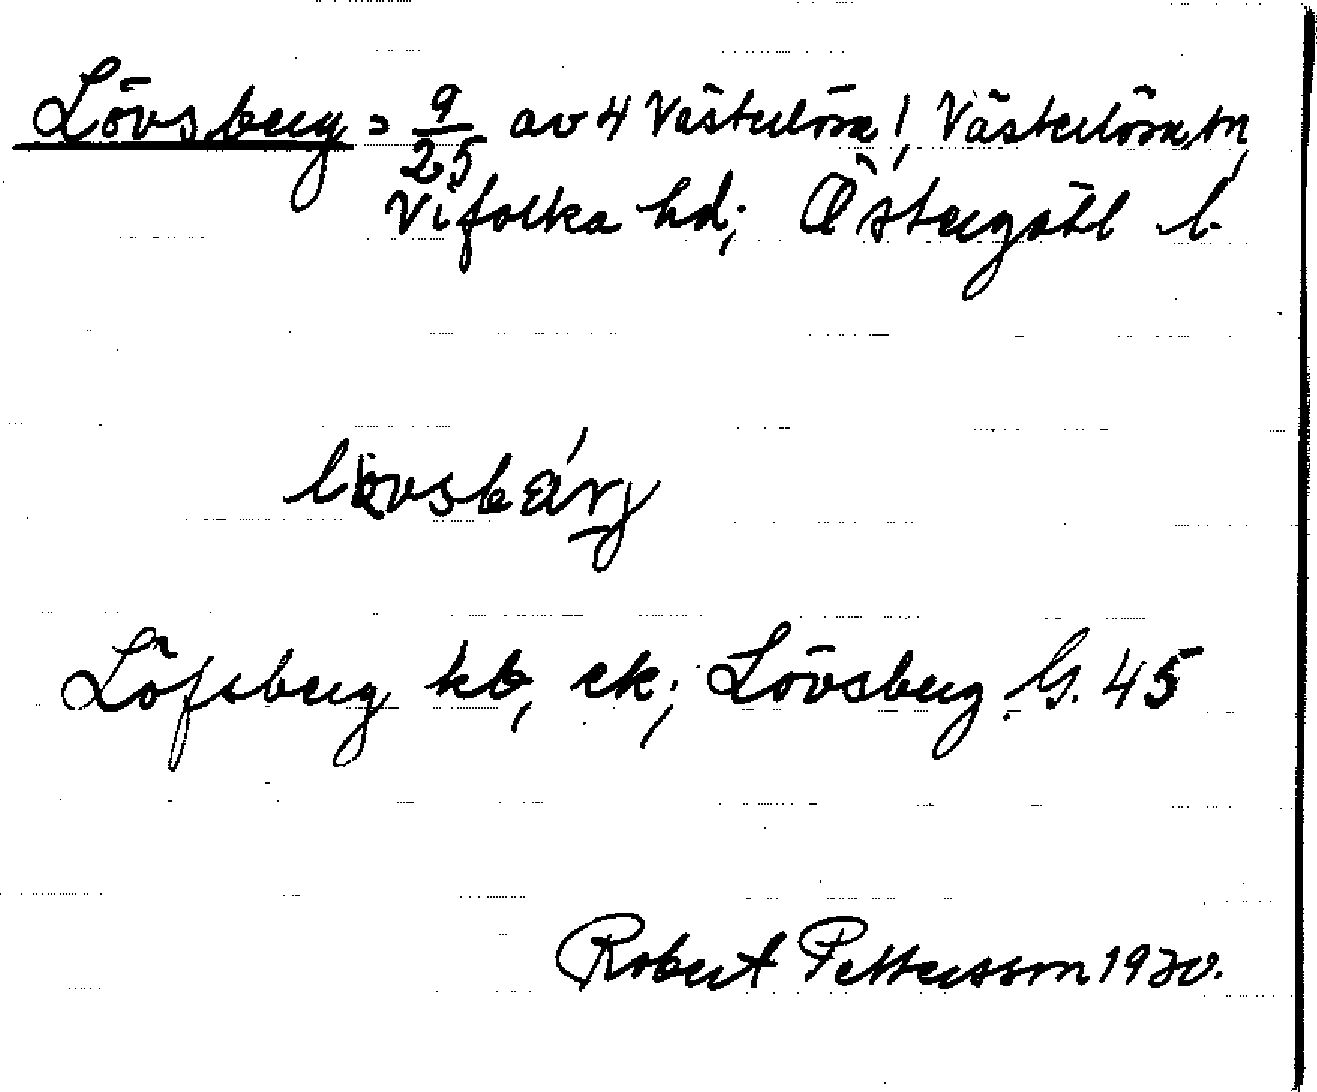 Lövsberg = 9/25 av 4 Västerlösa, Västerlösa sn,
Vifolka hd; Östergötl l.
lövsbárj
Löfsberg kb, ek; Lövsberg G. 45
Robert Pettersson 1930.